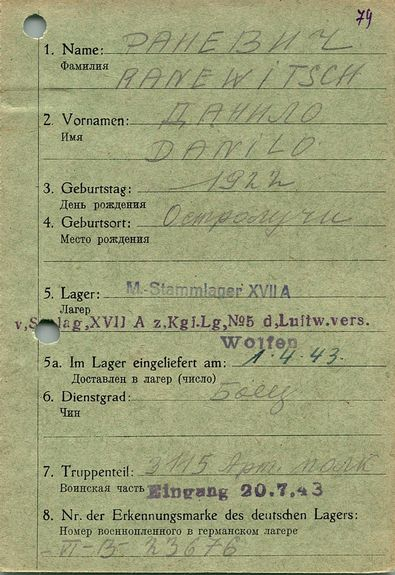 74
1. Name: РАНЕВИЧ
Фамилия
RANEWITSCH
2. Vornamen: ДАНИЛО
Имя
DANILO
3. Geburtstag: 1922
День рождения
4. Geburtsort: Остролучи
Место рождения
5. Lager: M.-Stammlager XVII A
Лагер
v, Stalag, XVII A z. Kgf. Lg, №5 d, Luftw. vers.
Wolfen
5a. Im Lager eingeliefert am: 1.4.43.
Доставлен в лагер (число)
6. Dienstgrad: Боец
Чин
7. Truppenteil: Арт. полк
Воинская часть Eingang 20.7.43
8. Nr. der Erkennungsmarke des deutschen Lagers:
Номер военнопленного в германском лагере
VI-B- 23676